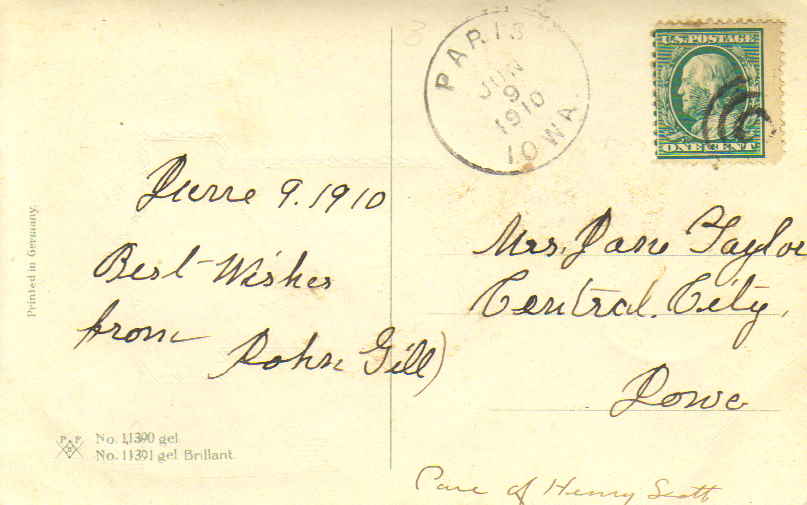 PARIS
JUN
9
1910
IOWA.
U.S. POSTAGE
ONE CENT
June 9. 1910
Best Wishes
from
John Gill)
Mrs. Jane Taylor
Central City,
Iowa
Care of Henry Scott
Printed in Germany.
P P
No. 11390 gel
No. 11391 gel Brillant.